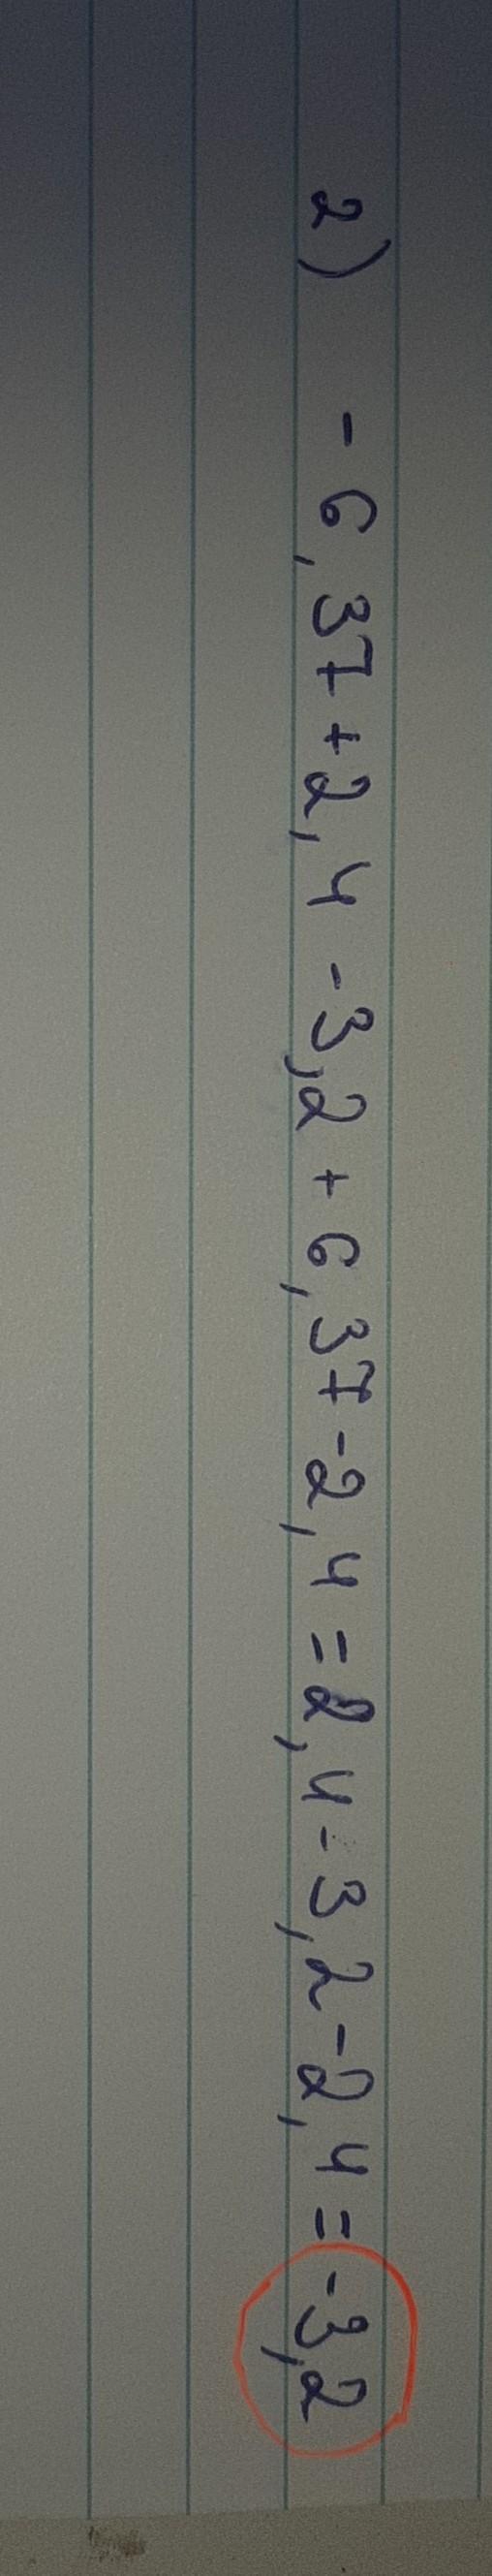 2) -6,37+2,4-3,2+6,37-2,4=2,4-3,2-2,4=-3,2